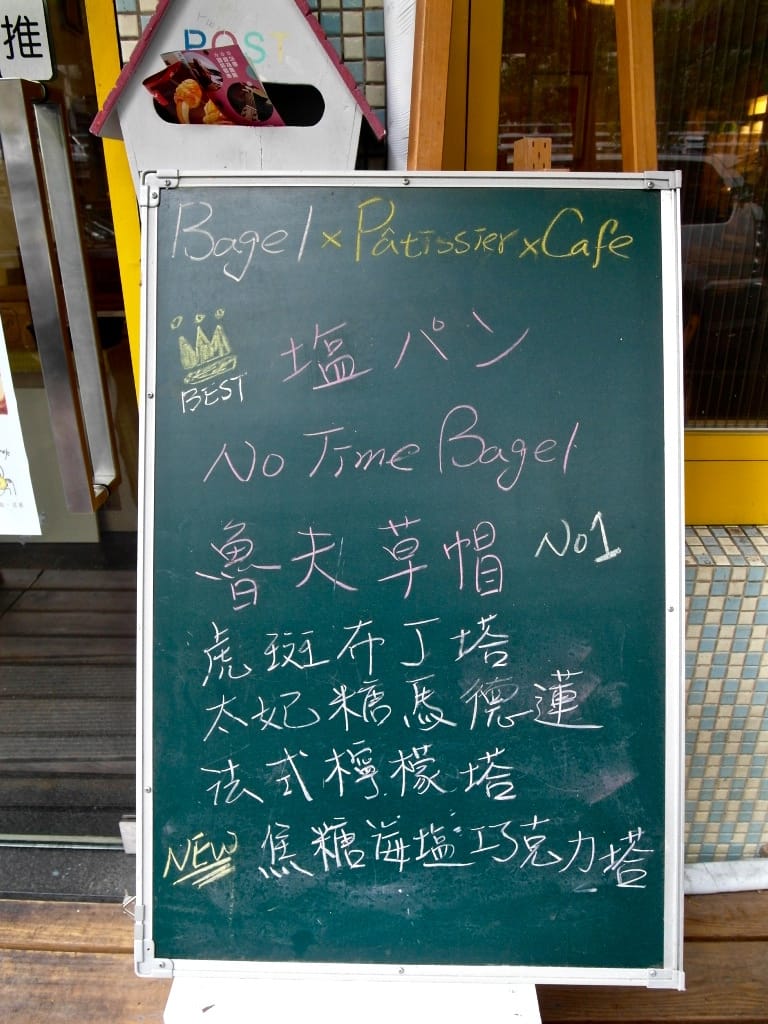 推
POST
Bagel x Pâtissier x Cafe
BEST 塩パン
No Time Bagel
魯夫草帽 No1
虎斑布丁塔
太妃糖馬德蓮
法式檸檬塔
NEW 焦糖海塩巧克力塔